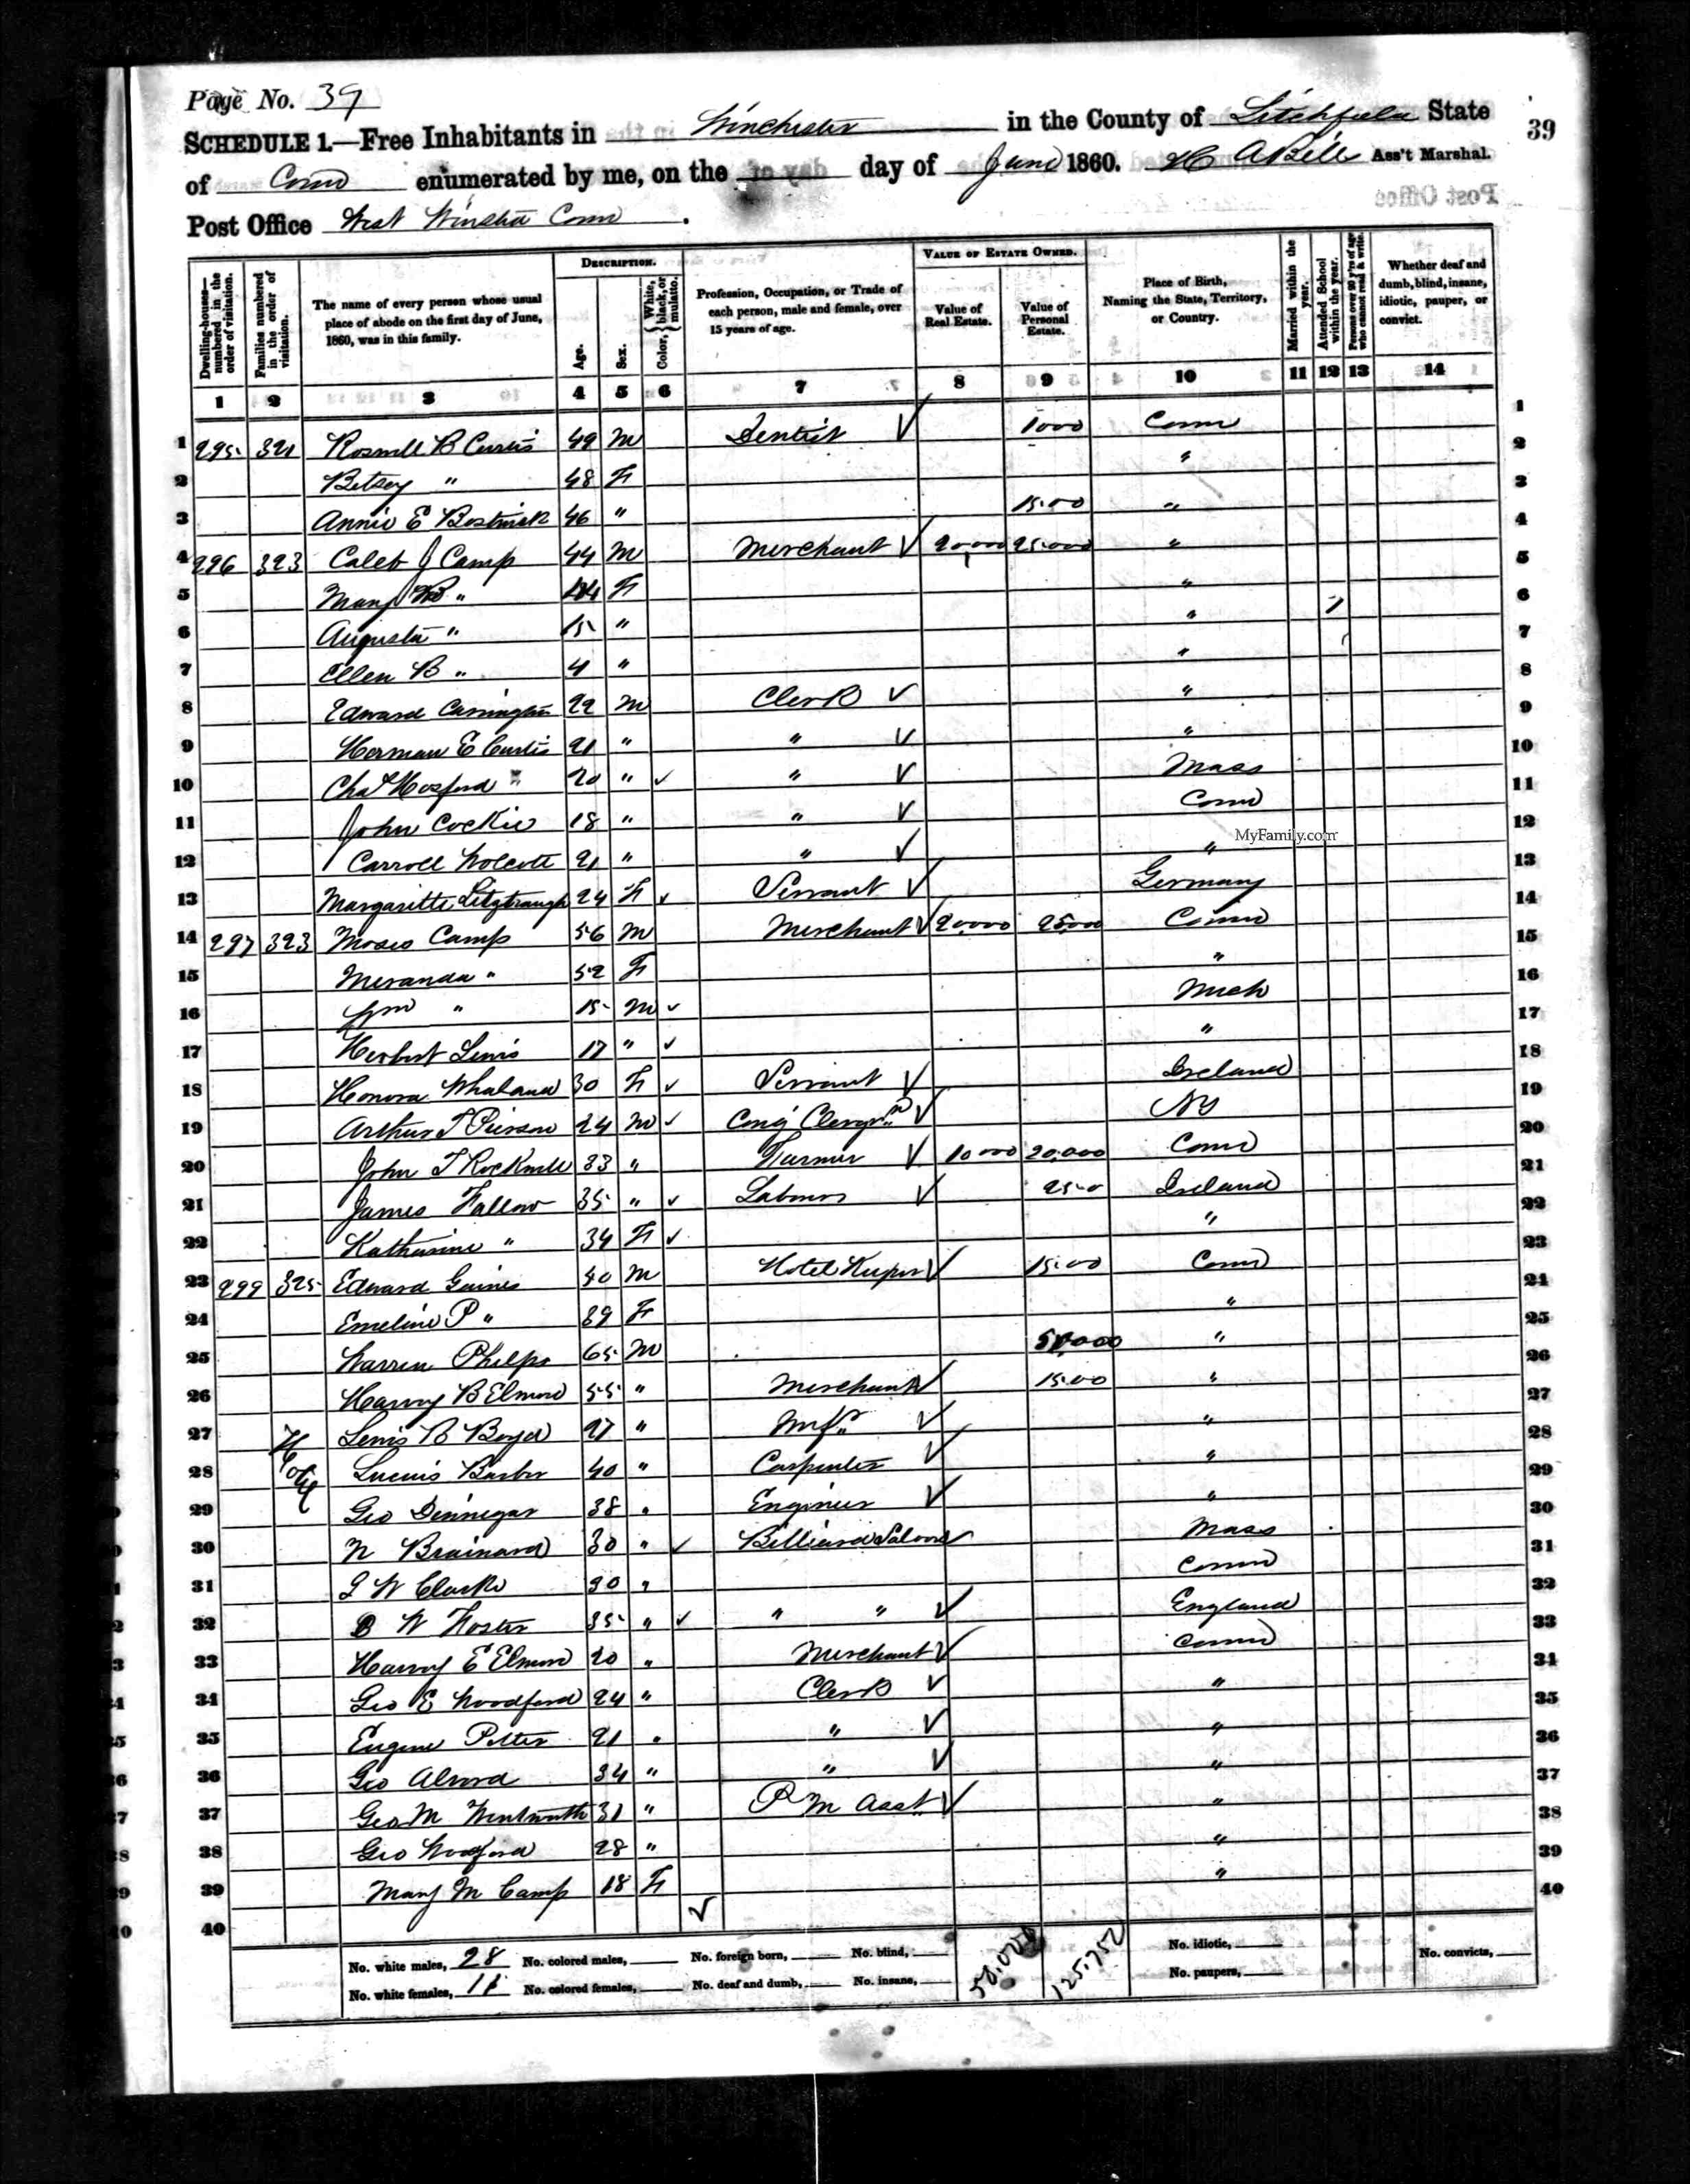 Page No. 39
SCHEDULE 1.—Free Inhabitants in Winchester in the County of Litchfield State
39
of Conn enumerated by me, on the day of June 1860. H A Bill Ass't Marshal.
Post Office West Winsted Conn.
Dwelling-houses—numbered in the order of visitation.
Families numbered in the order of visitation.
The name of every person whose usual place of abode on the first day of June, 1860, was in this family.
DESCRIPTION.
Age.
Sex.
Color, White, black, or mulatto.
Profession, Occupation, or Trade of each person, male and female, over 15 years of age.
VALUE OF ESTATE OWNED.
Value of Real Estate.
Value of Personal Estate.
Place of Birth, Naming the State, Territory, or Country.
Married within the year.
Attended School within the year.
Persons over 20 y'rs of age who cannot read & write.
Whether deaf and dumb, blind, insane, idiotic, pauper, or convict.
1 2 3 4 5 6 7 8 9 10 11 12 13 14
1 295 321 Roswell B Curtis 49 M Dentist √ 1000 Conn 1
2 Betsey " 48 F " 2
3 Annie E Bostwick 46 " 1500 " 3
4 296 323 Caleb J Camp 44 M Merchant √ 20,000 25000 " 4
5 Mary " 44 F " 5
6 Augusta " 15 " " / 6
7 Ellen B " 4 " " 7
8 Edward Carrington 22 M Clerk √ " 8
9 Herman E Curtis 21 " " √ " 9
10 Chas Hosford 20 " √ " √ Mass 10
11 John Cockie 18 " " √ Conn 11
12 Carroll Wolcott 21 " " √ " 12
MyFamily.com
13 Margaritte 24 F √ Servant √ Germany 13
14 297 323 Moses Camp 56 M Merchant √ 20000 25000 Conn 14
15 Meranda " 52 F " 15
16 Wm " 15 M √ Mich 16
17 Herbert Lewis 17 " √ " 17
18 Honora Whaland 30 F √ Servant √ Ireland 18
19 Arthur T Pierson 24 M √ Cong Clergn √ NY 19
20 John T Rockwell 33 " Farmer √ 10000 20,000 Conn 20
21 James Fallow 35 " √ Laborer √ 250 Ireland 21
22 Katharine " 34 F √ " 22
23 299 325 Edward Gaines 40 M Hotel Keeper √ 1500 Conn 23
24 Emeline P " 39 F " 24
25 Warren Phelps 65 M 50,000 " 25
26 Harvey B Elmore 55 " Merchant √ 1500 " 26
27 Hotel Lewis B Boyd 27 " Mfr √ " 27
28 Lucius Barber 40 " Carpenter √ " 28
29 Geo Dennegar 38 " Engineer √ " 29
30 N Brainard 30 " √ Billiard Saloon √ Mass 30
31 W Clarke 30 " Conn 31
32 B W Foster 35 " √ " " √ England 32
33 Harvey E Elmore 20 " Merchant √ Conn 33
34 Geo E Woodford 24 " Clerk √ " 34
35 Eugene Potter 21 " " √ " 35
36 Geo Alvord 34 " " √ " 36
37 Geo M Wentworth 31 " P M Asst √ " 37
38 Geo Woodford 28 " " 38
39 Mary M Camp 18 F " 39
40 √ 40
No. white males, 28 No. colored males, No. foreign born, No. blind, 50,000 125,750 No. idiotic, No. convicts,
No. white females, 11 No. colored females, No. deaf and dumb, No. insane, No. paupers,